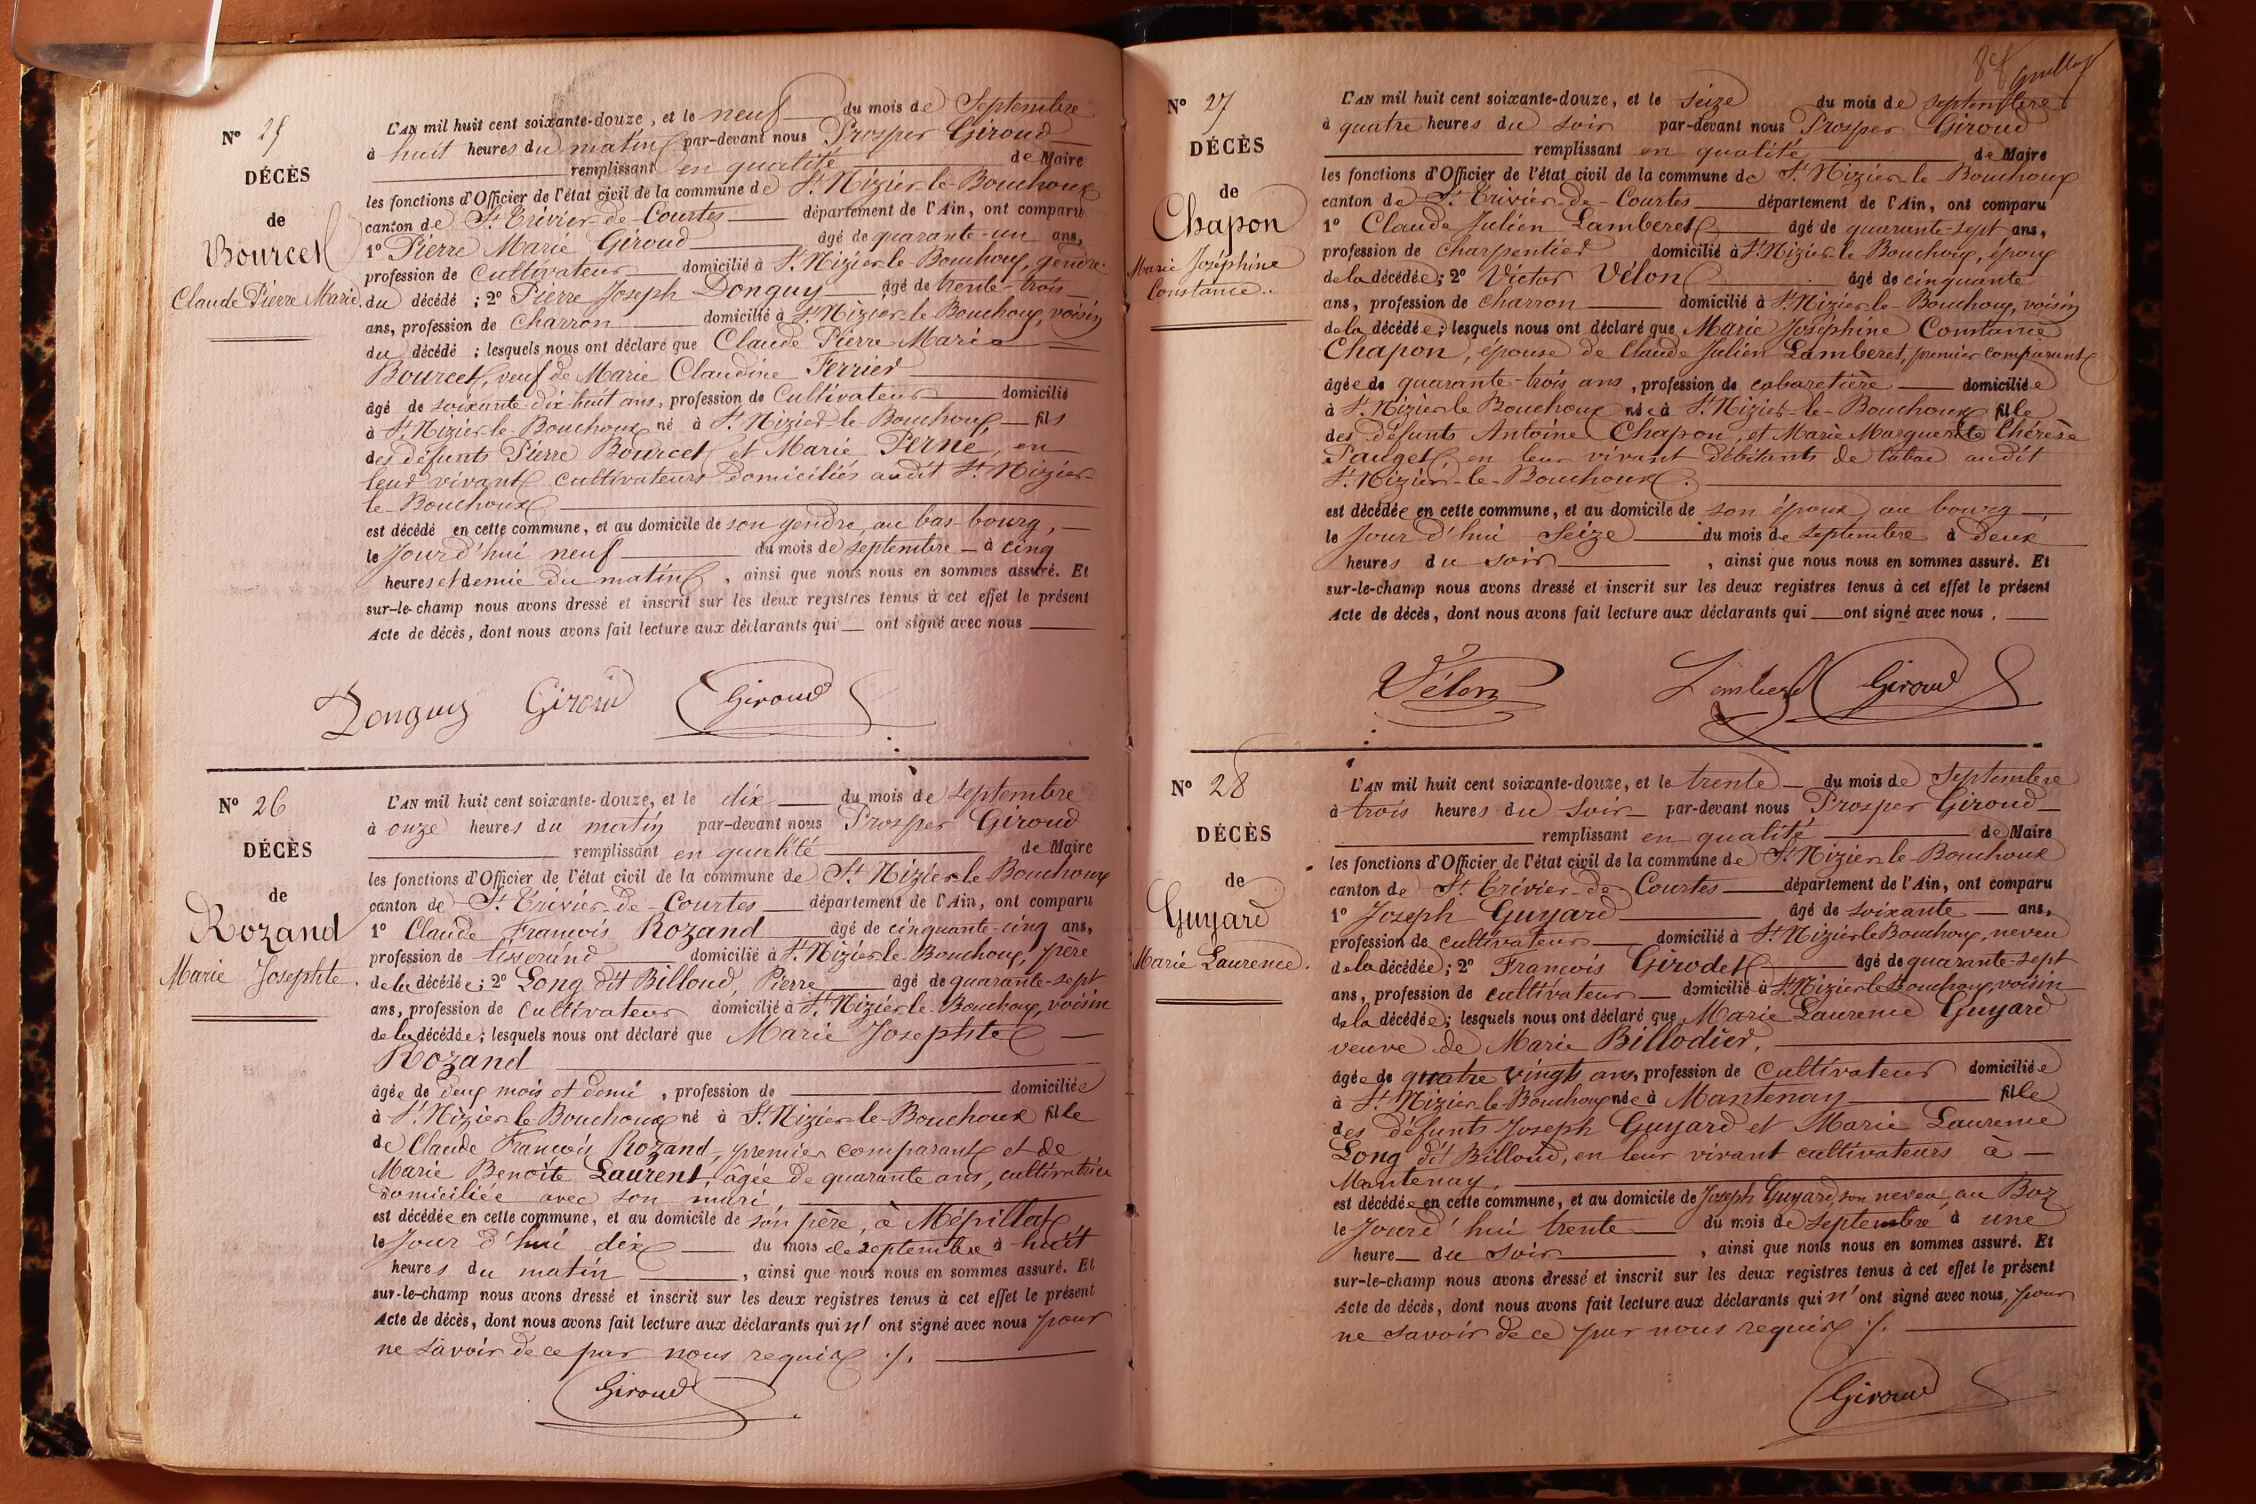 N° 25
DÉCÈS
de
Bourcet
Claude Pierre Marie.
L'AN mil huit cent soixante-douze, et le neuf du mois de Septembre
à huit heures du matin par-devant nous Prosper Giroud
remplissant en qualité de Maire
les fonctions d'Officier de l'état civil de la commune de St. Nizier-le-Bouchoux
canton de St. Trivier-de-Courtes département de l'Ain, ont comparu
1° Pierre Marie Giroud âgé de quarante-un ans,
profession de Cultivateur domicilié à St. Nizier-le-Bouchoux, gendre
du décédé ; 2° Pierre Joseph Donguy âgé de trente-trois
ans, profession de Charron domicilié à St. Nizier-le-Bouchoux, voisin
du décédé ; lesquels nous ont déclaré que Claude Pierre Marie
Bourcet, veuf de Marie Claudine Ferrier
âgé de soixante-dix-huit ans, profession de Cultivateur domicilié
à St. Nizier-le-Bouchoux né à St. Nizier-le-Bouchoux, fils
des défunts Pierre Bourcet et Marie Perne, en
leur vivant cultivateurs domiciliés audit St. Nizier-
le-Bouchoux
est décédé en cette commune, et au domicile de son gendre, au bas-bourg,
le Jourd'hui neuf du mois de septembre à cinq
heures et demie du matin, ainsi que nous nous en sommes assuré. Et
sur-le-champ nous avons dressé et inscrit sur les deux registres tenus à cet effet le présent
Acte de décès, dont nous avons fait lecture aux déclarants qui ont signé avec nous
Donguy Giroud Giroud
N° 26
DÉCÈS
de
Rozand
Marie Josephte.
L'AN mil huit cent soixante-douze, et le dix du mois de septembre
à onze heures du matin par-devant nous Prosper Giroud
remplissant en qualité de Maire
les fonctions d'Officier de l'état civil de la commune de St. Nizier-le-Bouchoux
canton de St. Trivier-de-Courtes département de l'Ain, ont comparu
1° Claude François Rozand âgé de cinquante-cinq ans,
profession de tisserand domicilié à St. Nizier-le-Bouchoux, père
de la décédée ; 2° Long dit Billoud, Pierre âgé de quarante-sept
ans, profession de Cultivateur domicilié à St. Nizier-le-Bouchoux, voisin
de la décédée ; lesquels nous ont déclaré que Marie Josephte
Rozand
âgée de deux mois et demi, profession de domiciliée
à St. Nizier-le-Bouchoux né à St. Nizier-le-Bouchoux fille
de Claude François Rozand, premier comparant et de
Marie Benoîte Laurent, âgée de quarante ans, cultivatrice
domiciliée avec son mari,
est décédée en cette commune, et au domicile de son père, à Mépillat
le Jour d'hui dix du mois de septembre à huit
heures du matin, ainsi que nous nous en sommes assuré. Et
sur-le-champ nous avons dressé et inscrit sur les deux registres tenus à cet effet le présent
Acte de décès, dont nous avons fait lecture aux déclarants qui n'ont signé avec nous pour
ne savoir de ce par nous requis ./.
Giroud
N° 27
DÉCÈS
de
Chapon
Marie Joséphine
Constance.
L'AN mil huit cent soixante-douze, et le seize du mois de septembre
à quatre heures du soir par-devant nous Prosper Giroud
remplissant en qualité de Maire
les fonctions d'Officier de l'état civil de la commune de St. Nizier-le-Bouchoux
canton de St. Trivier-de-Courtes département de l'Ain, ont comparu
1° Claude Julien Lamberet âgé de quarante-sept ans,
profession de charpentier domicilié à St Nizier-le-Bouchoux, époux
de la décédée ; 2° Victor Vélon âgé de cinquante
ans, profession de charron domicilié à St. Nizier-le-Bouchoux, voisin
de la décédée ; lesquels nous ont déclaré que Marie Joséphine Constance
Chapon, épouse de Claude Julien Lamberet, premier comparant
âgée de quarante-trois ans, profession de cabaretière domiciliée
à St. Nizier-le-Bouchoux née à St. Nizier-le-Bouchoux fille
des défunts Antoine Chapon, et Marie Marguerite Thérèse
Pauget en leur vivant débitants de tabac audit
St. Nizier-le-Bouchoux.
est décédée en cette commune, et au domicile de son époux au bourg
le Jour d'hui seize du mois de septembre à deux
heures du soir, ainsi que nous nous en sommes assuré. Et
sur-le-champ nous avons dressé et inscrit sur les deux registres tenus à cet effet le présent
Acte de décès, dont nous avons fait lecture aux déclarants qui ont signé avec nous.
Vélon Lamberet Giroud
N° 28
DÉCÈS
de
Guyard
Marie Laurence.
L'AN mil huit cent soixante-douze, et le trente du mois de Septembre
à trois heures du soir par-devant nous Prosper Giroud
remplissant en qualité de Maire
les fonctions d'Officier de l'état civil de la commune de St. Nizier-le-Bouchoux
canton de St. Trivier-de-Courtes département de l'Ain, ont comparu
1° Joseph Guyard âgé de soixante ans,
profession de cultivateur domicilié à St. Nizier le Bouchoux, neveu
de la décédée ; 2° François Girodet âgé de quarante-sept
ans, profession de cultivateur domicilié à St. Nizier le Bouchoux, voisin
de la décédée ; lesquels nous ont déclaré que Marie Laurence Guyard
veuve de Marie Billodier,
âgée de quatre vingts ans, profession de Cultivateur domiciliée
à St. Nizier-le-Bouchoux née à Mantenay fille
des défunts Joseph Guyard et Marie Laurence
Long dit Billoud, en leur vivant cultivateurs à
Mantenay,
est décédée en cette commune, et au domicile de Joseph Guyard, son neveu, au Boz
le Jourd'hui trente du mois de septembre à une
heure du soir, ainsi que nous nous en sommes assuré. Et
sur-le-champ nous avons dressé et inscrit sur les deux registres tenus à cet effet le présent
Acte de décès, dont nous avons fait lecture aux déclarants qui n'ont signé avec nous, pour
ne savoir de ce par nous requis ./.
Giroud